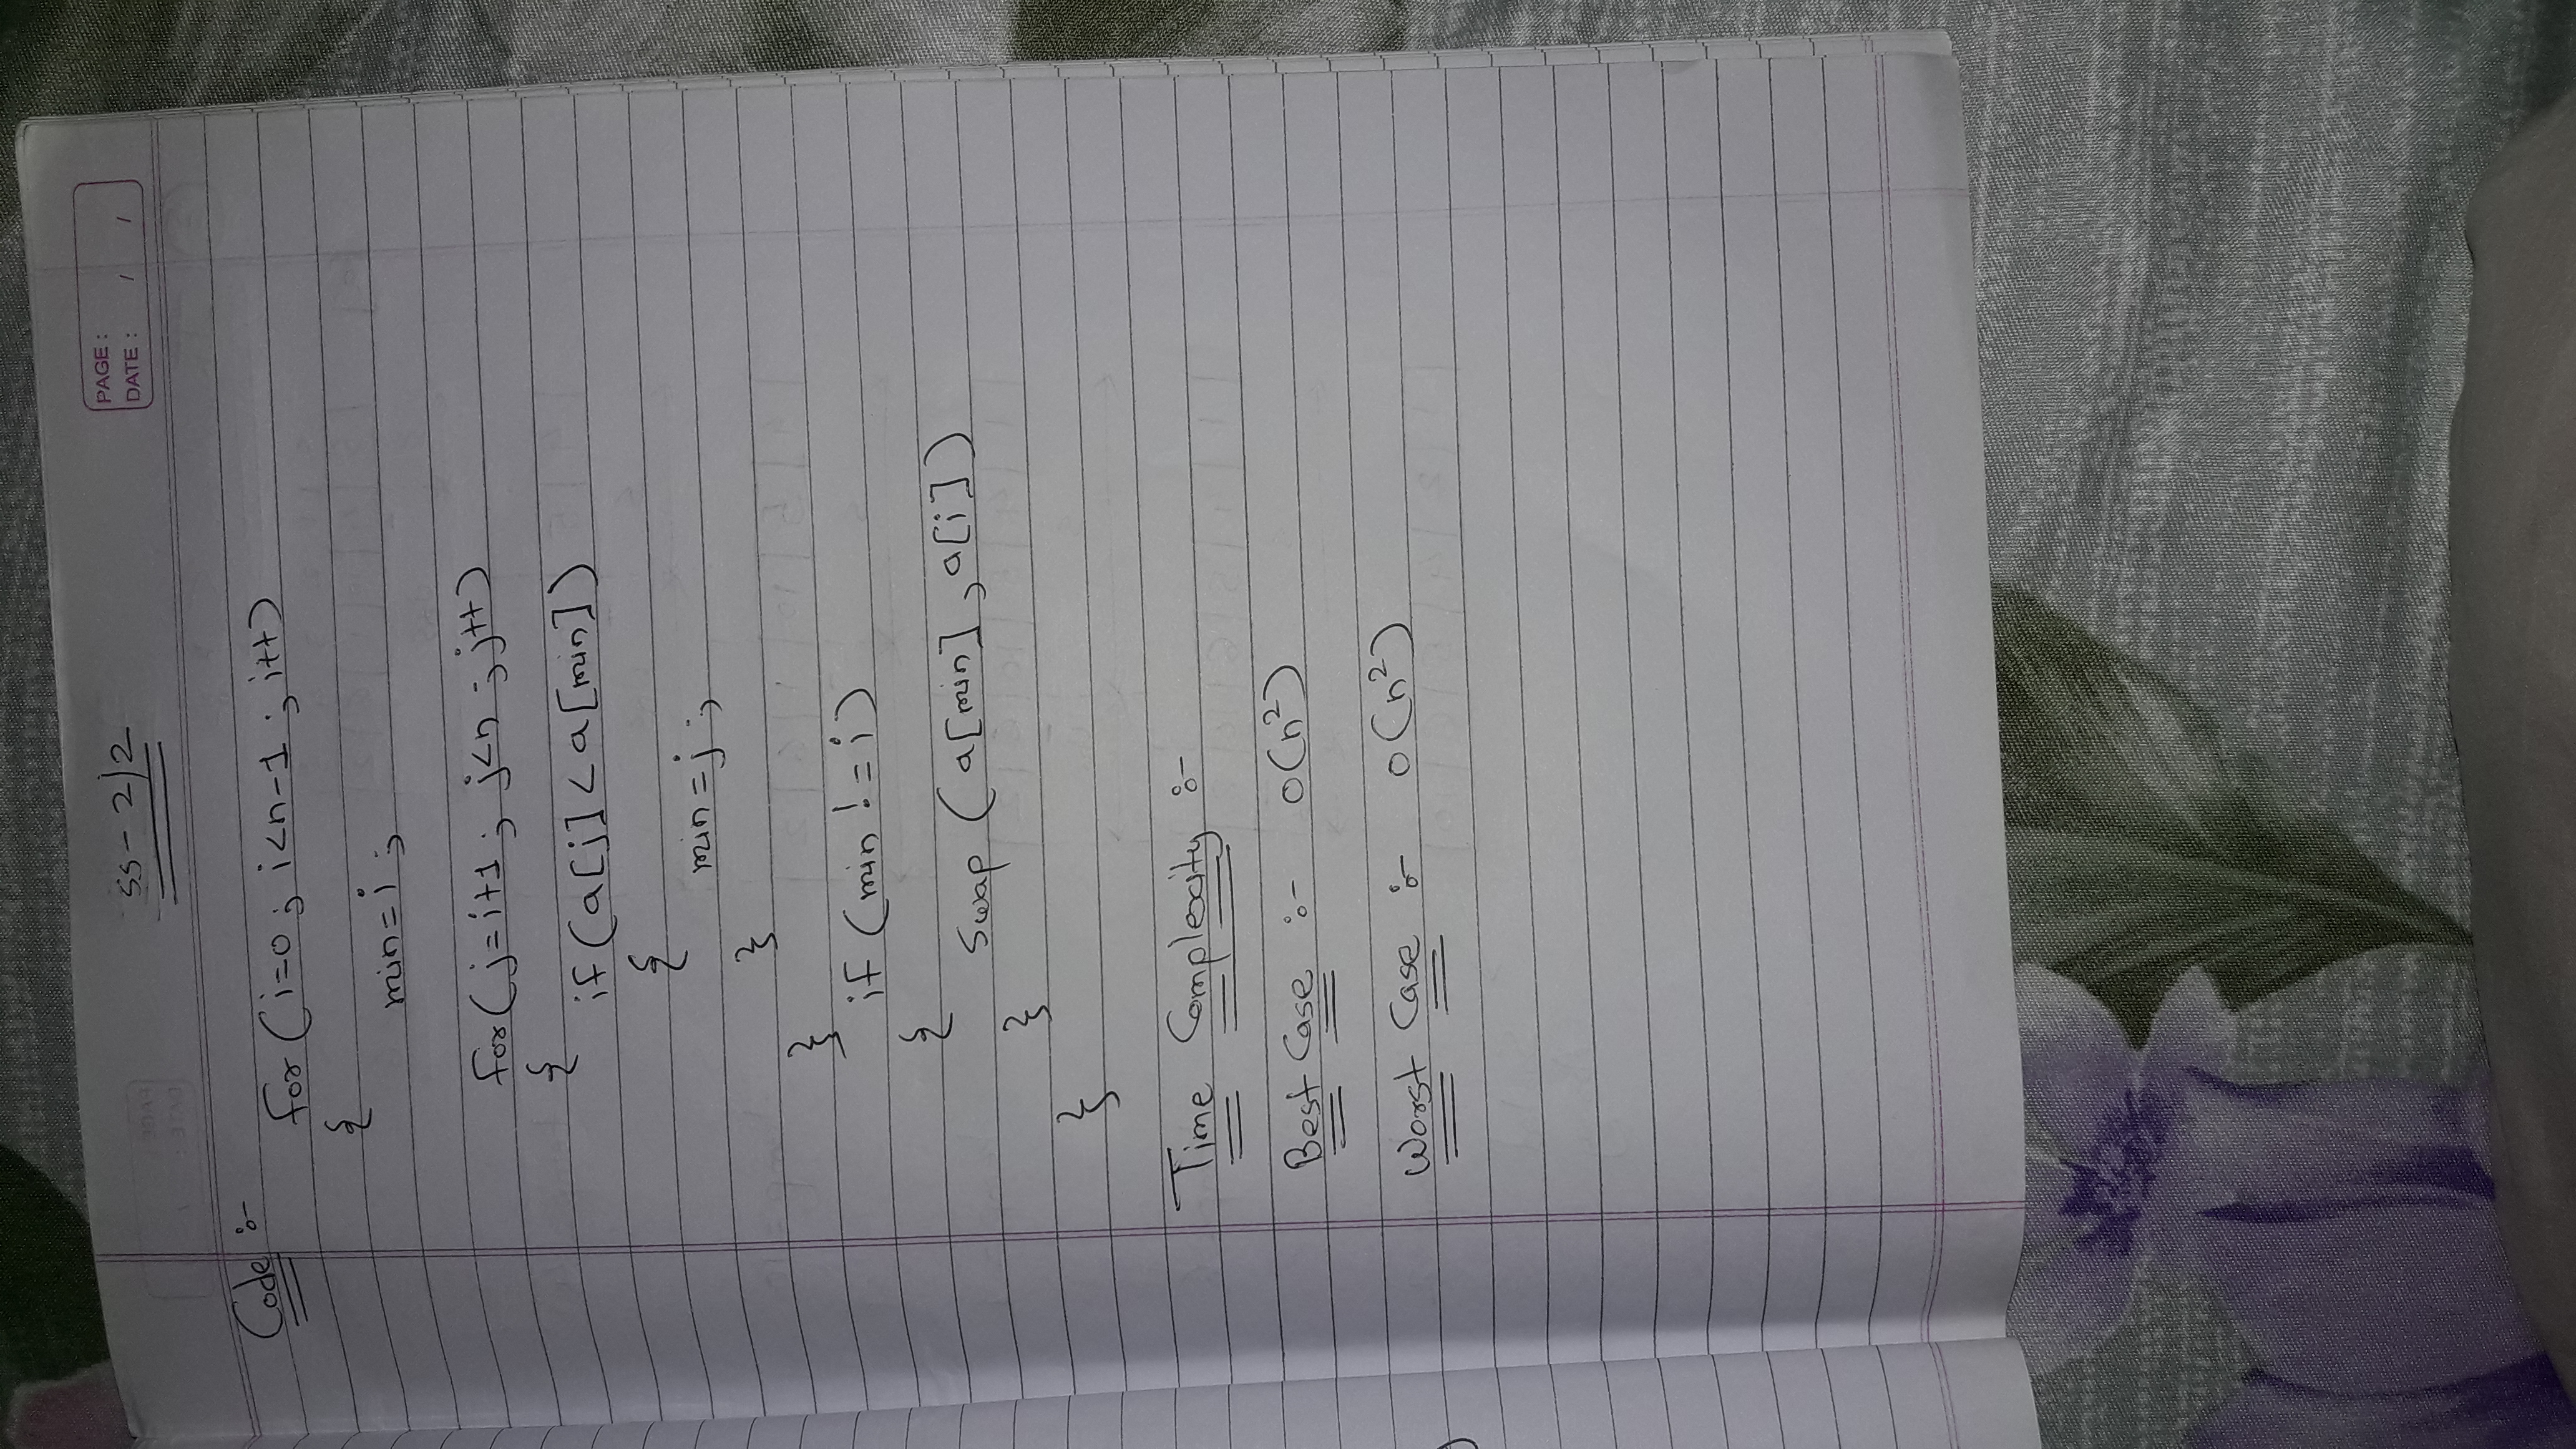 SS-2/2
PAGE :
DATE : / /
Code :-
for (i=0 ; i<n-1 ; i++)
{
min=i ;
for(j=i+1 ; j<n ; j++)
{
if (a[j]<a[min])
{
min=j ;
}
}
if (min != i)
{
Swap (a[min] , a[i])
}
}
Time Complexity :-
Best Case :- O(n²)
Worst Case :- O(n²)